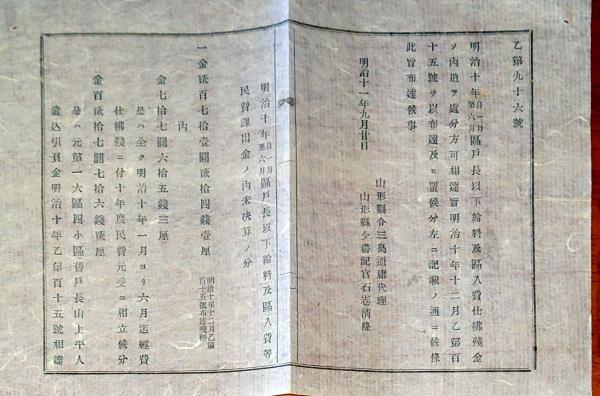 乙第九十六號
明治十年自一月至六月區戸長以下給料及區入費仕拂殘金
ノ內追テ處分方可相達旨明治十年十二月乙第百
十五號ヲ以布達及ヒ置候分左ニ記載ノ通ニ候條
此旨布達候事
明治十一年九月廿日
山形縣令三島通庸代理
山形縣少書記官石巻清隆
明治十年自一月至六月區戸長以下給料及區入費等
民費課出金ノ內未決算ノ分
一金貳百七拾壹圓貳拾四錢壹厘
明治十年十二月乙第百十五號布達殘額
內
金七拾七圓六拾五錢三厘
是ハ全ク明治十年一月ヨリ六月迄經費
仕拂殘ニ付十年度民費元受ニ相立候分
金百貳拾七圓七拾六錢貳厘
是ハ元第一大區四小區舊戸長山上平人
遣込引負金明治十年乙第百十五號相達